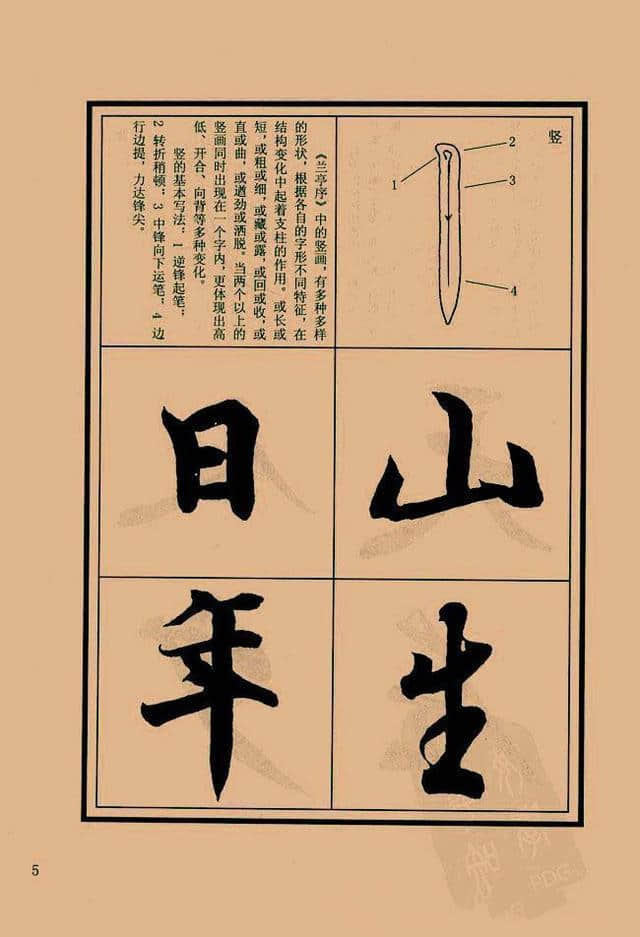 竖
1
2
3
4
《兰亭序》中的竖画，有多种多样
的形状，根据各自的字形不同特征，在
结构变化中起着支柱的作用。或长或
短，或粗或细，或藏或露，或回或收，或
直或曲，或遒劲或洒脱。当两个以上的
竖画同时出现在一个字内，更体现出高
低、开合、向背等多种变化。
竖的基本写法：1 逆锋起笔；
2 转折稍顿；3 中锋向下运笔；4 边
行边提，力达锋尖。
山
日
生
年
5
PDG